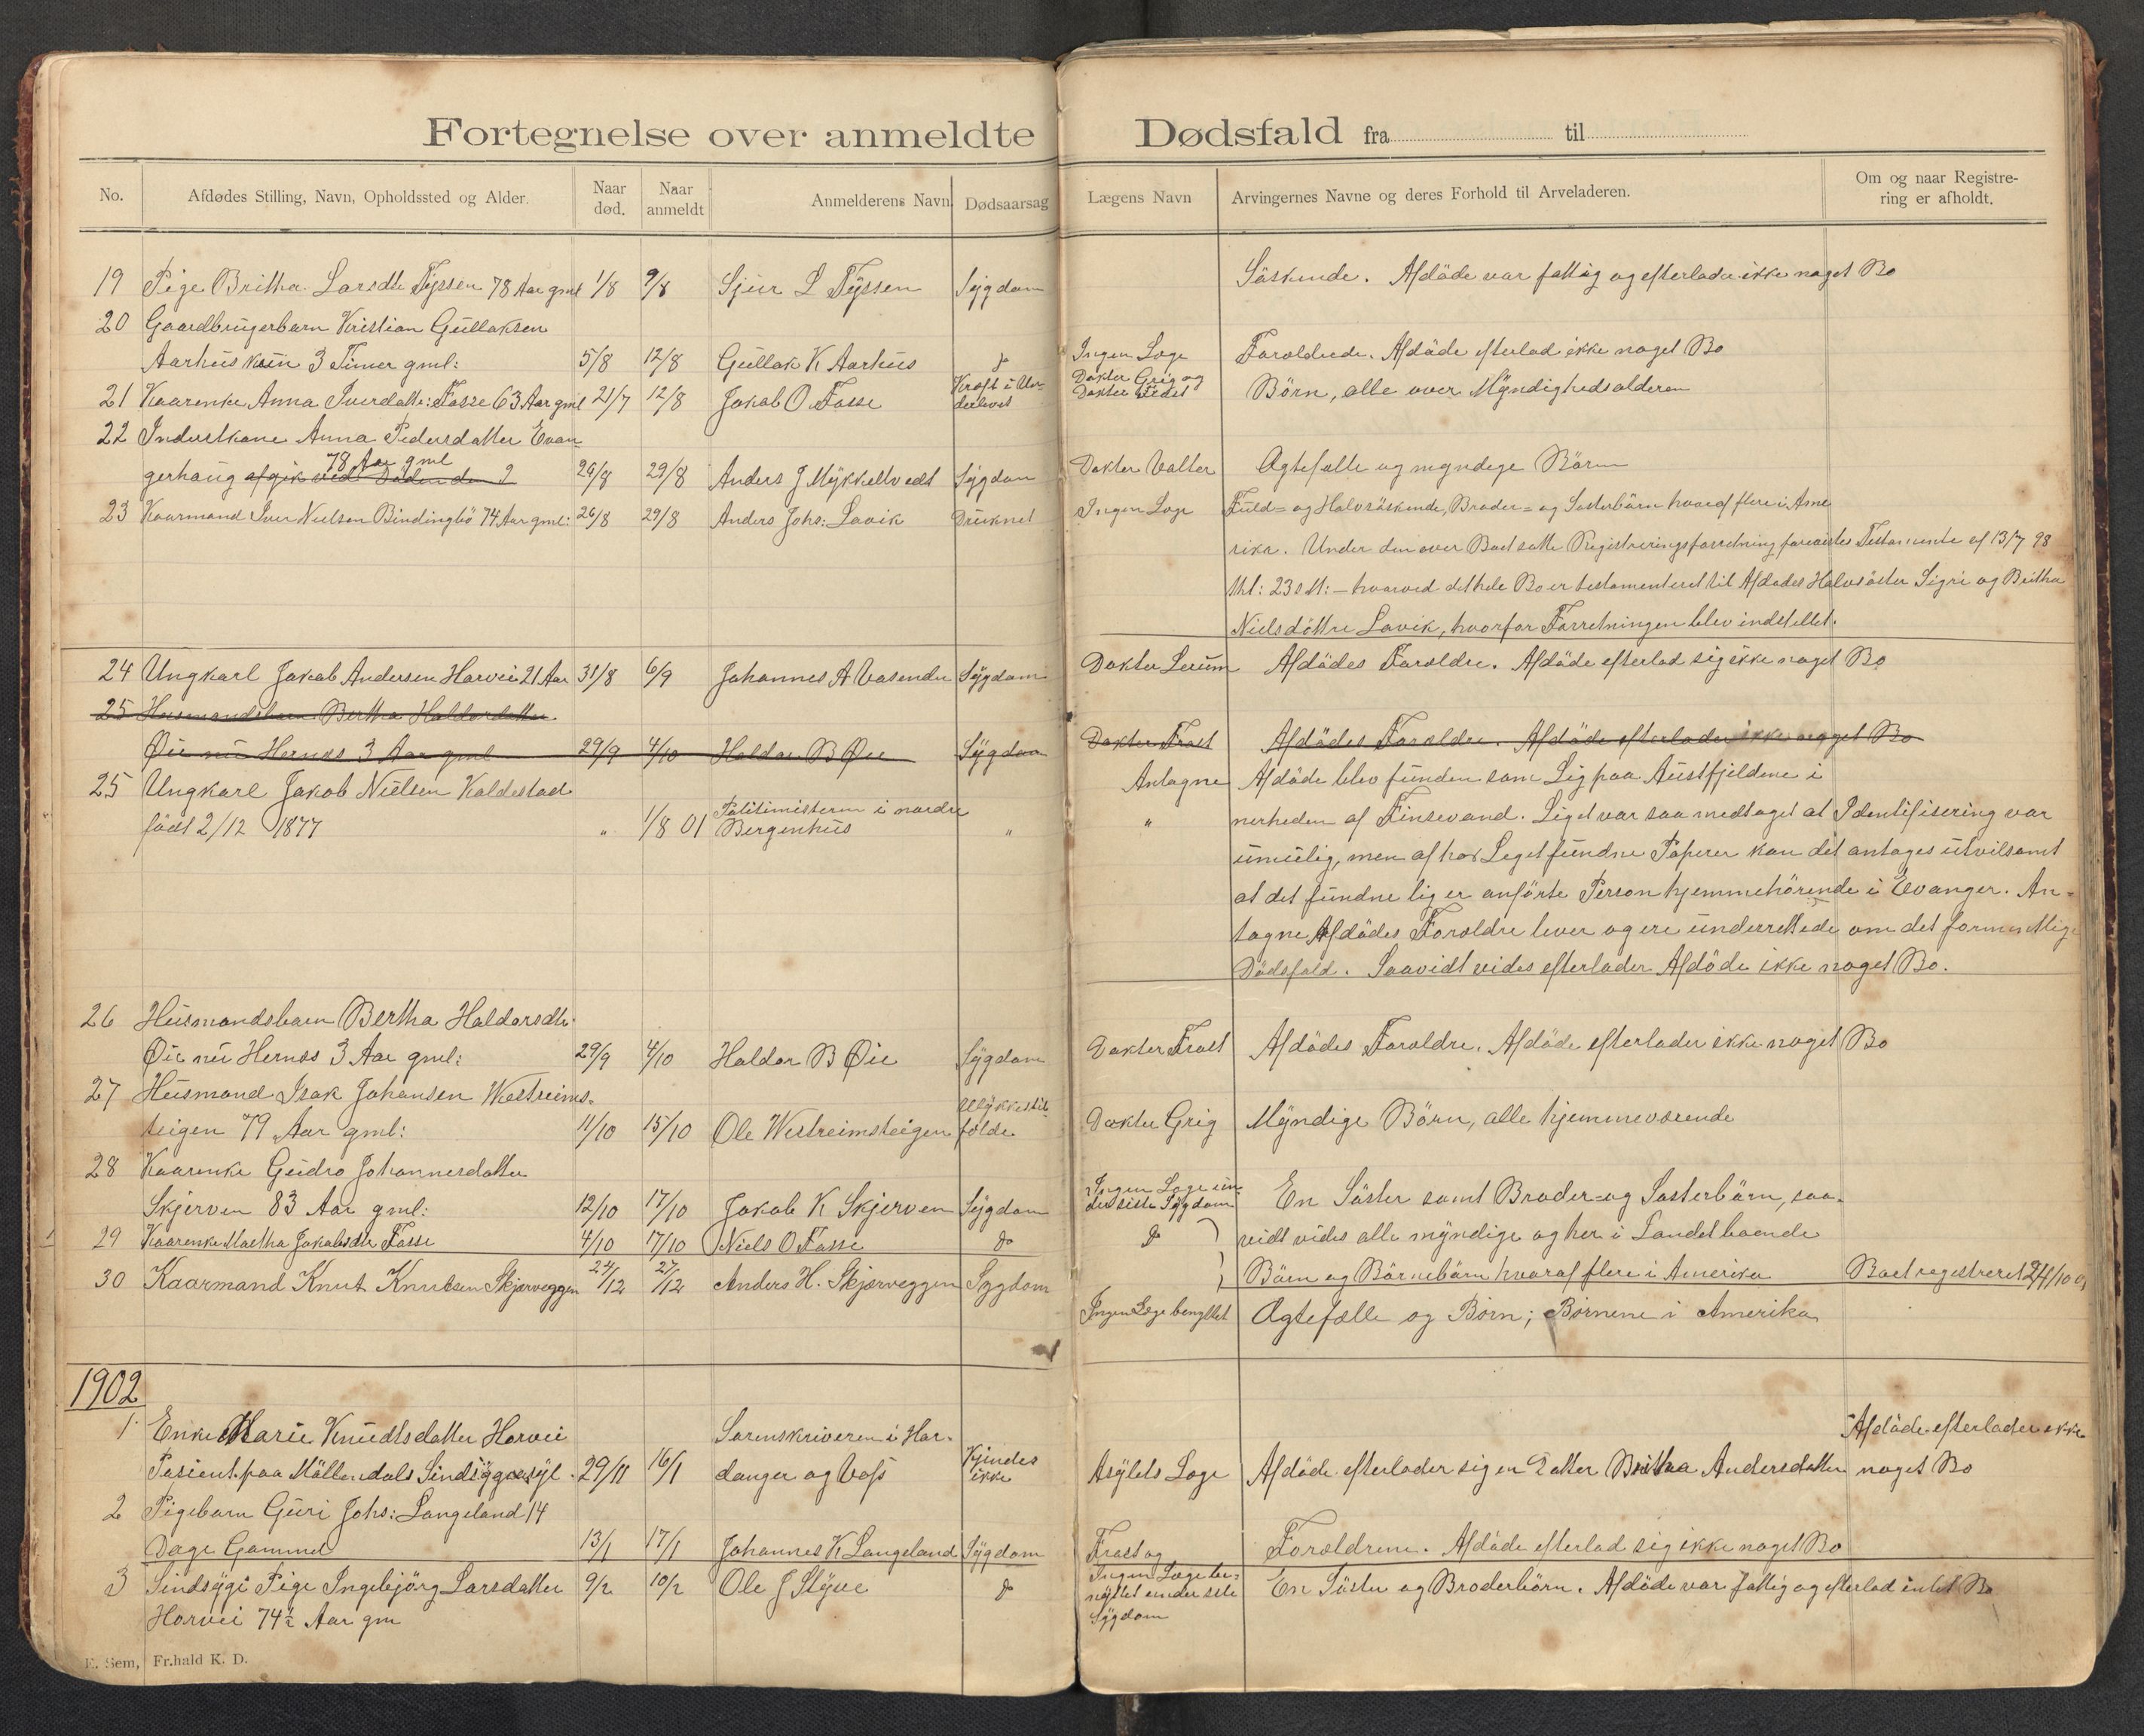 Fortegnelse over anmeldte Dødsfald fra til
No. Afdødes Stilling, Navn, Opholdssted og Alder. Naar død. Naar anmeldt Anmelderens Navn. Dødsaarsag Lægens Navn Arvingernes Navne og deres Forhold til Arveladeren. Om og naar Registre-
ring er afholdt.
19 Pige Britha Larsdtr Tyssen 78 Aar gml 1/8 9/8 Sjur L Tyssen Sygdom Söskende. Afdöde var fattig og efterlader ikke noget Bo
20 Gaardbrugerbarn Kristian Gullaksen
Aarhus kun 3 Timer gml: 5/8 12/8 Gullak K Aarhus do Ingen Læge Forældrede. Afdöde efterlod ikke noget Bo
21 Kaarenke Anna Iverdatter: Fasse 63 Aar gml 21/7 12/8 Jakob O. Fasse Kræft i Un-
derlivet Doktor Grig og
Doktor Tedet Börn, alle over Myndighedsalderen
22 Inderstkone Anna Pedersdatter Evan-
78 Aar gml
gerhaug afgik ved Döden den 2 26/8 29/8 Anders J Mykkeltvedt Sygdom Doktor Valter Ægtefælle og myndige Börn
23 Kaarmand Iver Nielsen Bindingbö 74 Aar gml: 26/8 29/8 Anders Johs: Lavik Druknet Ingen Læge Fuld= og Halvsöskende, Broder= og Sösterbörn hvoraf flere i Ame
rika. Under den over Boet satte Registreringsforretning forevistes Testamente af 13/7 98
thl: 23 - hvorved det hele Bo er testamenteret til Afdödes Halvsöster Sigri og Britha
Nielsdöttre Lavik, hvorfor Forretningen blev indstillet.
24 Ungkarl Jakob Andersen Horvei 21 Aar 31/8 6/9 Johannes A Vasenden Sygdom Doktor Lerum Afdödes Forældre. Afdöde efterlod sig ikke noget Bo
25 Husmandsbarn Bertha Haldorsdatter
Øie nu Hernes 3 Aar gml 29/9 4/10 Haldor B Øie Sygdom Doktor Frost Afdödes Forældre. Afdöde efterlader ikke noget Bo
25 Ungkarl Jakob Nielsen Kaldestad Antagne Afdöde blev funden som Lig paa Austfjeldene i
födt 2/12 1877 " 1/8 01 Politimesteren i nordre
Bergenhus " " nærheden af Finsevand. Liget var saa medtaget at Identifisering var
umulig, men af hos Leget fundne Papirer kan det antages utvilsomt
at det fundne lig er anförte Person hjemmehörende i Evanger. An-
tagne Afdödes Forældre lever og ere underrettede om det formentlige
Dödsfald. Saavidt vides efterlader Afdöde ikke noget Bo.
26 Husmandsbarn Bertha Haldorsdtr.
Øie nu Hernes 3 Aar gml: 29/9 4/10 Haldor B Øie Sygdom Doktor Frost Afdödes Forældre. Afdöde efterlader ikke noget Bo
27 Husmand Isak Johansen Westreims-
teigen 79 Aar gml: 11/10 15/10 Ole Westreimsteigen Ulykkestil-
fælde Doktor Grig Myndige Börn, alle hjemmeværende
28 Kaarenke Gudro Johannesdatter
Skjerven 83 Aar gml: 12/10 17/10 Jakob K Skjerven Sygdom Ingen Læge un-
der siste Sygdom En Söster samt Broder= og Sösterbörn, saa-
vidt vides alle myndige og her i Landet boende
29 Kaarenke Martha Jakobsdtr Fasse 4/10 17/10 Niels O Fasse do do Börn og Börnebörn hvoraf flere i Amerika Boet registreret 24/10 01
30 Kaarmand Knut Knutsen Skjerveggen 24/12 27/12 Anders H. Skjerveggen Sygdom Ingen Læge benyttet Ægtefælle og Børn; Børnene i Amerika
1902
1 Enke Marie Knudtsdatter Horvei Sorenskriveren i Har-
Pasient paa Möllendals Sindsygeasyl. 29/11 16/1 danger og Voss Kjendes
ikke Asylets Læge Afdöde efterlader sig en Datter Britha Andersdatter Afdöde efterlader ikke
noget Bo
2 Pigebarn Guri Johs: Langeland 14
Dage Gammel 13/1 17/1 Johannes K Langeland Sygdom Frost og Forældrene. Afdöde efterlod sig ikke noget Bo
3 Sindsyge Pige Ingebjörg Larsdatter 9/2 10/2 Ole J Styve do Ingen Læge be-
nyttet under siste
Sygdom En Söster og Broderbörn. Afdöde var fattig og efterlod intet Bo
Horvei 74½ Aar gm
E. Sem, Fr.hald K. D.